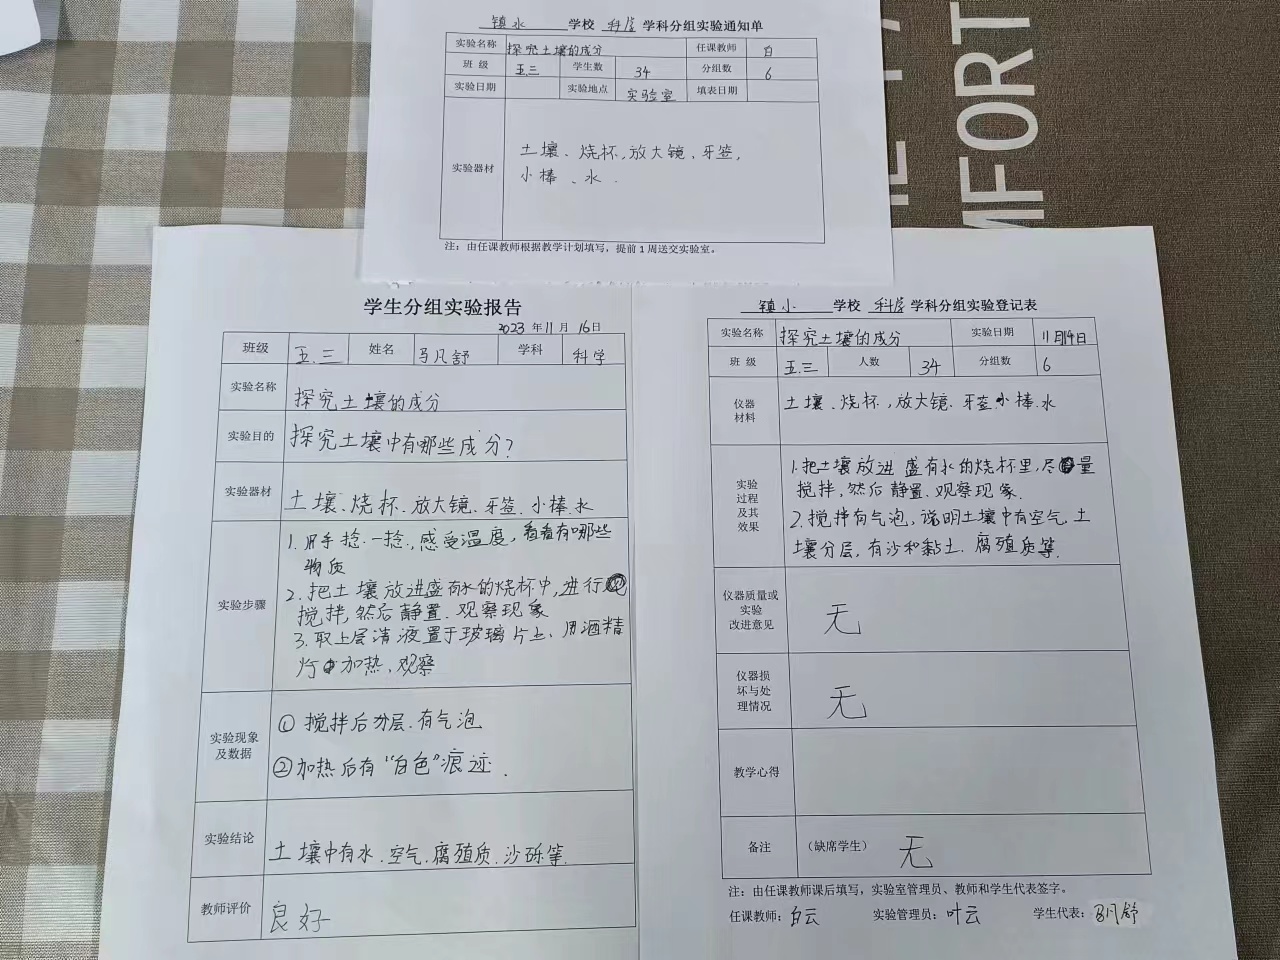 镇水 学校 科学 学科分组实验通知单
实验名称 探究土壤的成分 任课教师 白
班 级 五.三 学生数 34 分组数 6
实验日期 实验地点 实验室 填表日期
实验器材 土壤、烧杯,放大镜、牙签,
小棒、水.
注：由任课教师根据教学计划填写，提前1周送交实验室。
MFORT
学生分组实验报告
2023 年 11 月 16 日
班级 五.三 姓名 马凡舒 学科 科学
实验名称 探究土壤的成分
实验目的 探究土壤中有哪些成分?
实验器材 土壤、烧杯、放大镜、牙签、小棒、水
实验步骤
1. 用手捻一捻,感受温度,看看有哪些
物质
2. 把土壤放进盛有水的烧杯中,进行
搅拌,然后静置.观察现象
3. 取上层清液置于玻璃片上、用酒精
灯加热,观察
实验现象
及数据
① 搅拌后分层.有气泡
②加热后有“白色”痕迹.
实验结论 土壤中有水.空气.腐殖质.沙砾等.
教师评价 良好
镇小 学校 科学 学科分组实验登记表
实验名称 探究土壤的成分 实验日期 11月14日
班 级 五.三 人数 34 分组数 6
仪器
材料
土壤、烧杯,放大镜.牙签.小棒.水
实验
过程
及其
效果
1.把土壤放进盛有水的烧杯里,尽量
搅拌,然后静置.观察现象.
2.搅拌有气泡,说明土壤中有空气,土
壤分层,有沙和黏土.腐殖质等.
仪器质量或
实验
改进意见
无
仪器损
坏与处
理情况
无
教学心得
备注 （缺席学生） 无
注：由任课教师课后填写，实验室管理员、教师和学生代表签字。
任课教师：白云 实验管理员：叶云 学生代表：